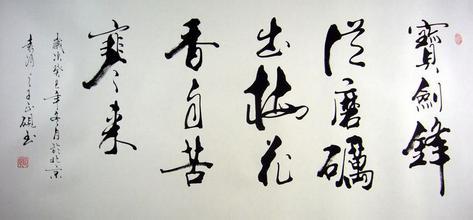 寶劍鋒
從磨礪
出梅花
香自苦
寒来
歲次癸年月於北京
硯书